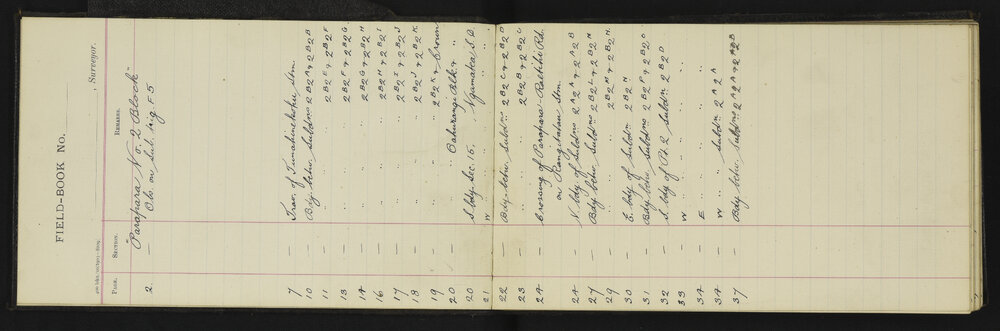 FIELD-BOOK No.
, Surveyor.
PAGE. SECTION. REMARKS.
"Parapara No 2 Block"
2 — Obs. on Sub. trig F5
7 — Trav. of Tumahinekohe Stm.
10 — Bdy. betw. Subdns 2B2A & 2B2B
11 — " " " 2B2E & 2B2F
13 — " " " 2B2F & 2B2G
14 — " " " 2B2G & 2B2H
16 — " " " 2B2H & 2B2I
17 — " " " 2B2I & 2B2J
18 — " " " 2B2J & 2B2K
19 — " " " 2B2K & Crown
20 — " " Oahurangi Blk. & "
20 — S. bdy. Sec. 15. Ngamatea S.D.
21 — W " " " "
22 — Bdy. betw. Subdns 2B2C & 2B2D
23 — " " " 2B2B & 2B2C
24 — Crossing of Parapara-Raetihi Rd.
on Stm.
24 — N. bdy of Subdns 2A2A & 2A2B
27 — Bdy. betw. Subdns 2B2L & 2B2M
29 — " " " 2B2M & 2B2N
30 — E. bdy of Subdn 2B2N
31 — Bdy. betw. Subdns 2B2P & 2B2O
32 — S. bdy of Pt 2 Subdn 2B2O
33 — W " " " "
34 — E " " " "
34 — W " " Subdn 2A2A
37 — Bdy. betw. Subdns 2A2A & 2A2B